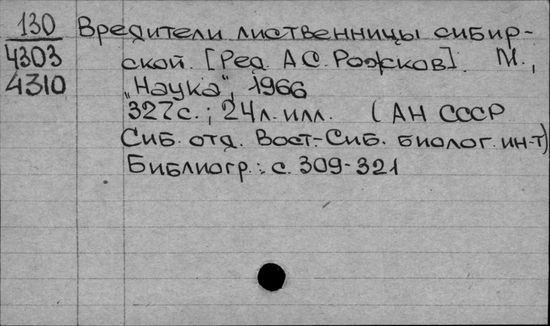 130 Вредители лиственницы сибир-
4303 ской. [Ред. А С. Рожков]. М.,
4310 „Наука", 1966
327с.; 24л. илл. (АН СССР
Сиб. отд. Вост.-Сиб. биолог. ин-т)
Библиогр.: с. 309-321